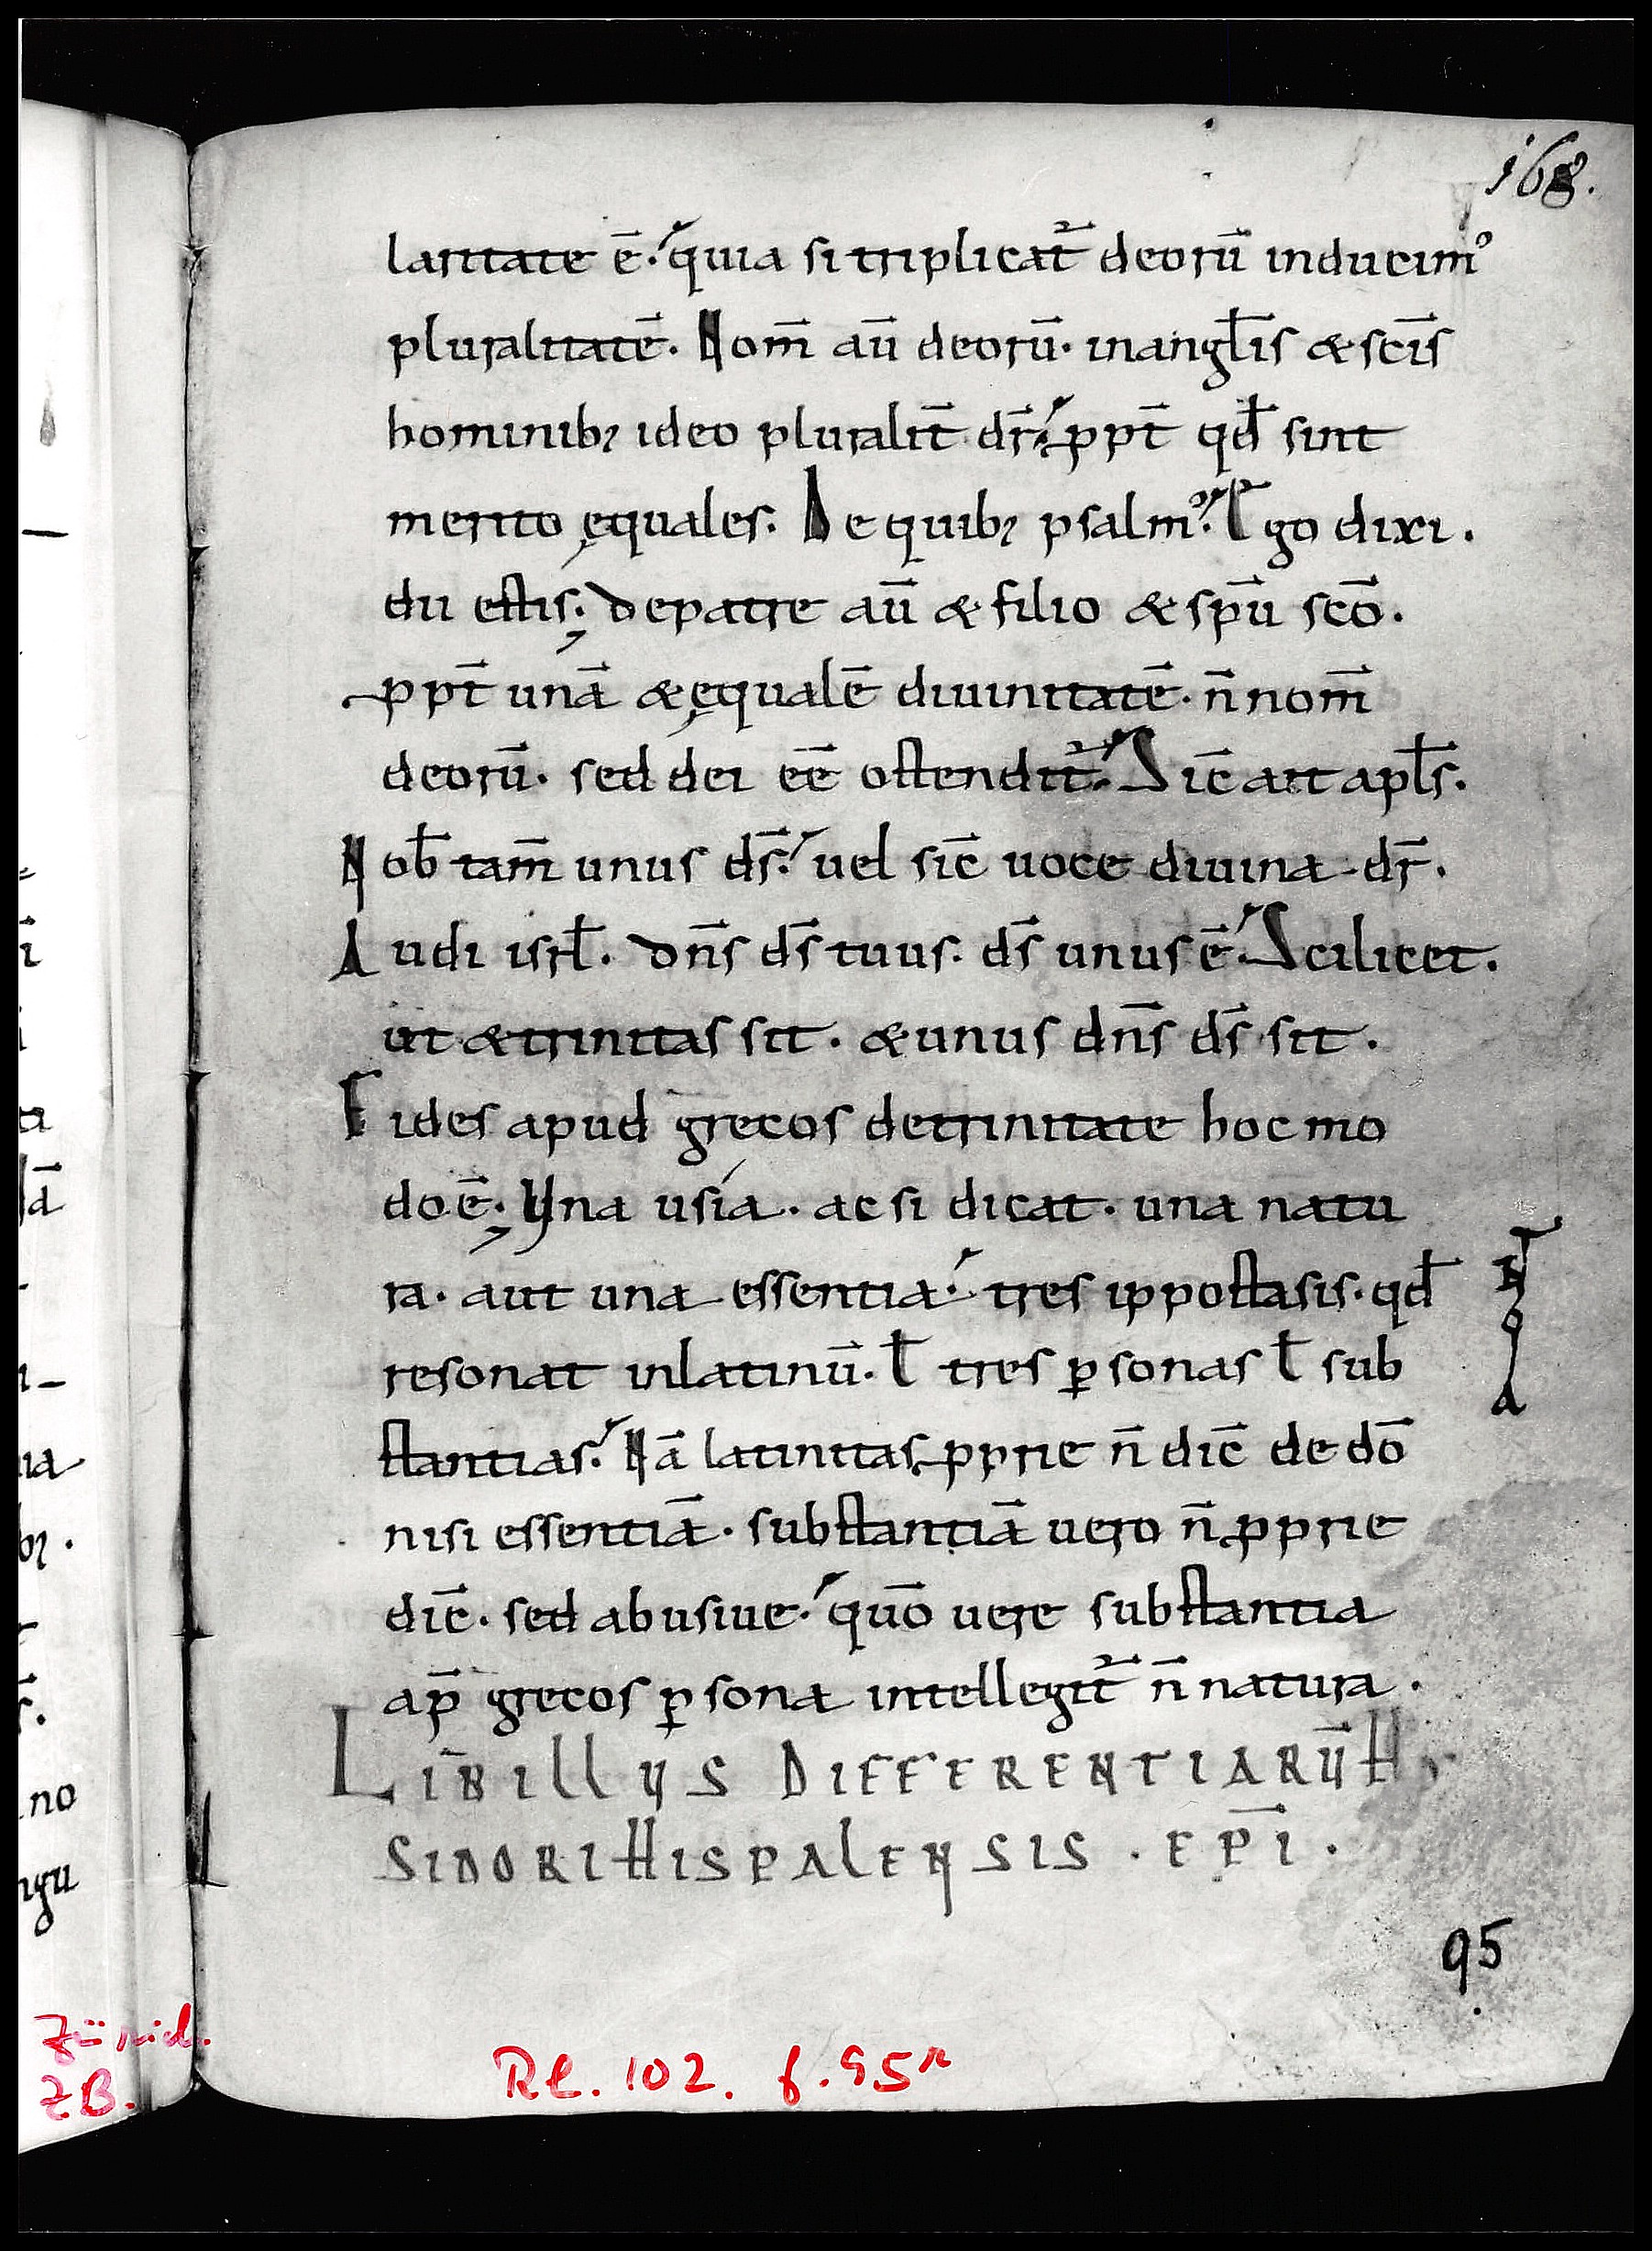 168.
laritate ē. quia si triplicat̄ deorū inducimꝰ
pluralitatē. Nom̄ aū deorū. inangl̄is & sc̄is
hominibꝫ ideo pluralit̄ dr̄. ꝓpt̄ qđ sint
merito ęquales. De quibꝫ psalmꝰ. Ego dixi.
dii estis; De patre aū & filio & sp̄u sc̄o.
ꝓpt̄ unā & ęqualē diuinitatē. n̄ nom̄
deorū. sed dei eē ostendit̄. Sic̄ ait apl̄s.
Nob̄ tam̄ unus ds̄. uel sic̄ uoce diuina dr̄.
Audi isrl̄. Dn̄s ds̄ tuus. ds̄ unus ē. Scilicet.
ut & trinitas sit. & unus dn̄s ds̄ sit.
Fides apud grecos de trinitate hoc mo
do ē; Una usía. ac si dicat. una natu
ra. aut una essentia. tres ippostasis. qđ
resonat in latinū. ł tres ꝑsonas ł sub
stantias. Nā latinitas ꝓprie n̄ dic̄ de dō
nisi essentiā. substantiā uero n̄ ꝓprie
dic̄. sed abusiue. quō uere substantia
ap̄ grecos ꝑsona intellegit̄ n̄ natura.
LIBILLUS DIFFERENTIARŪ H
SIDORI HISPALENSIS. EPĪ.
95
Zürich.
ZB.
Rh. 102. f. 95r